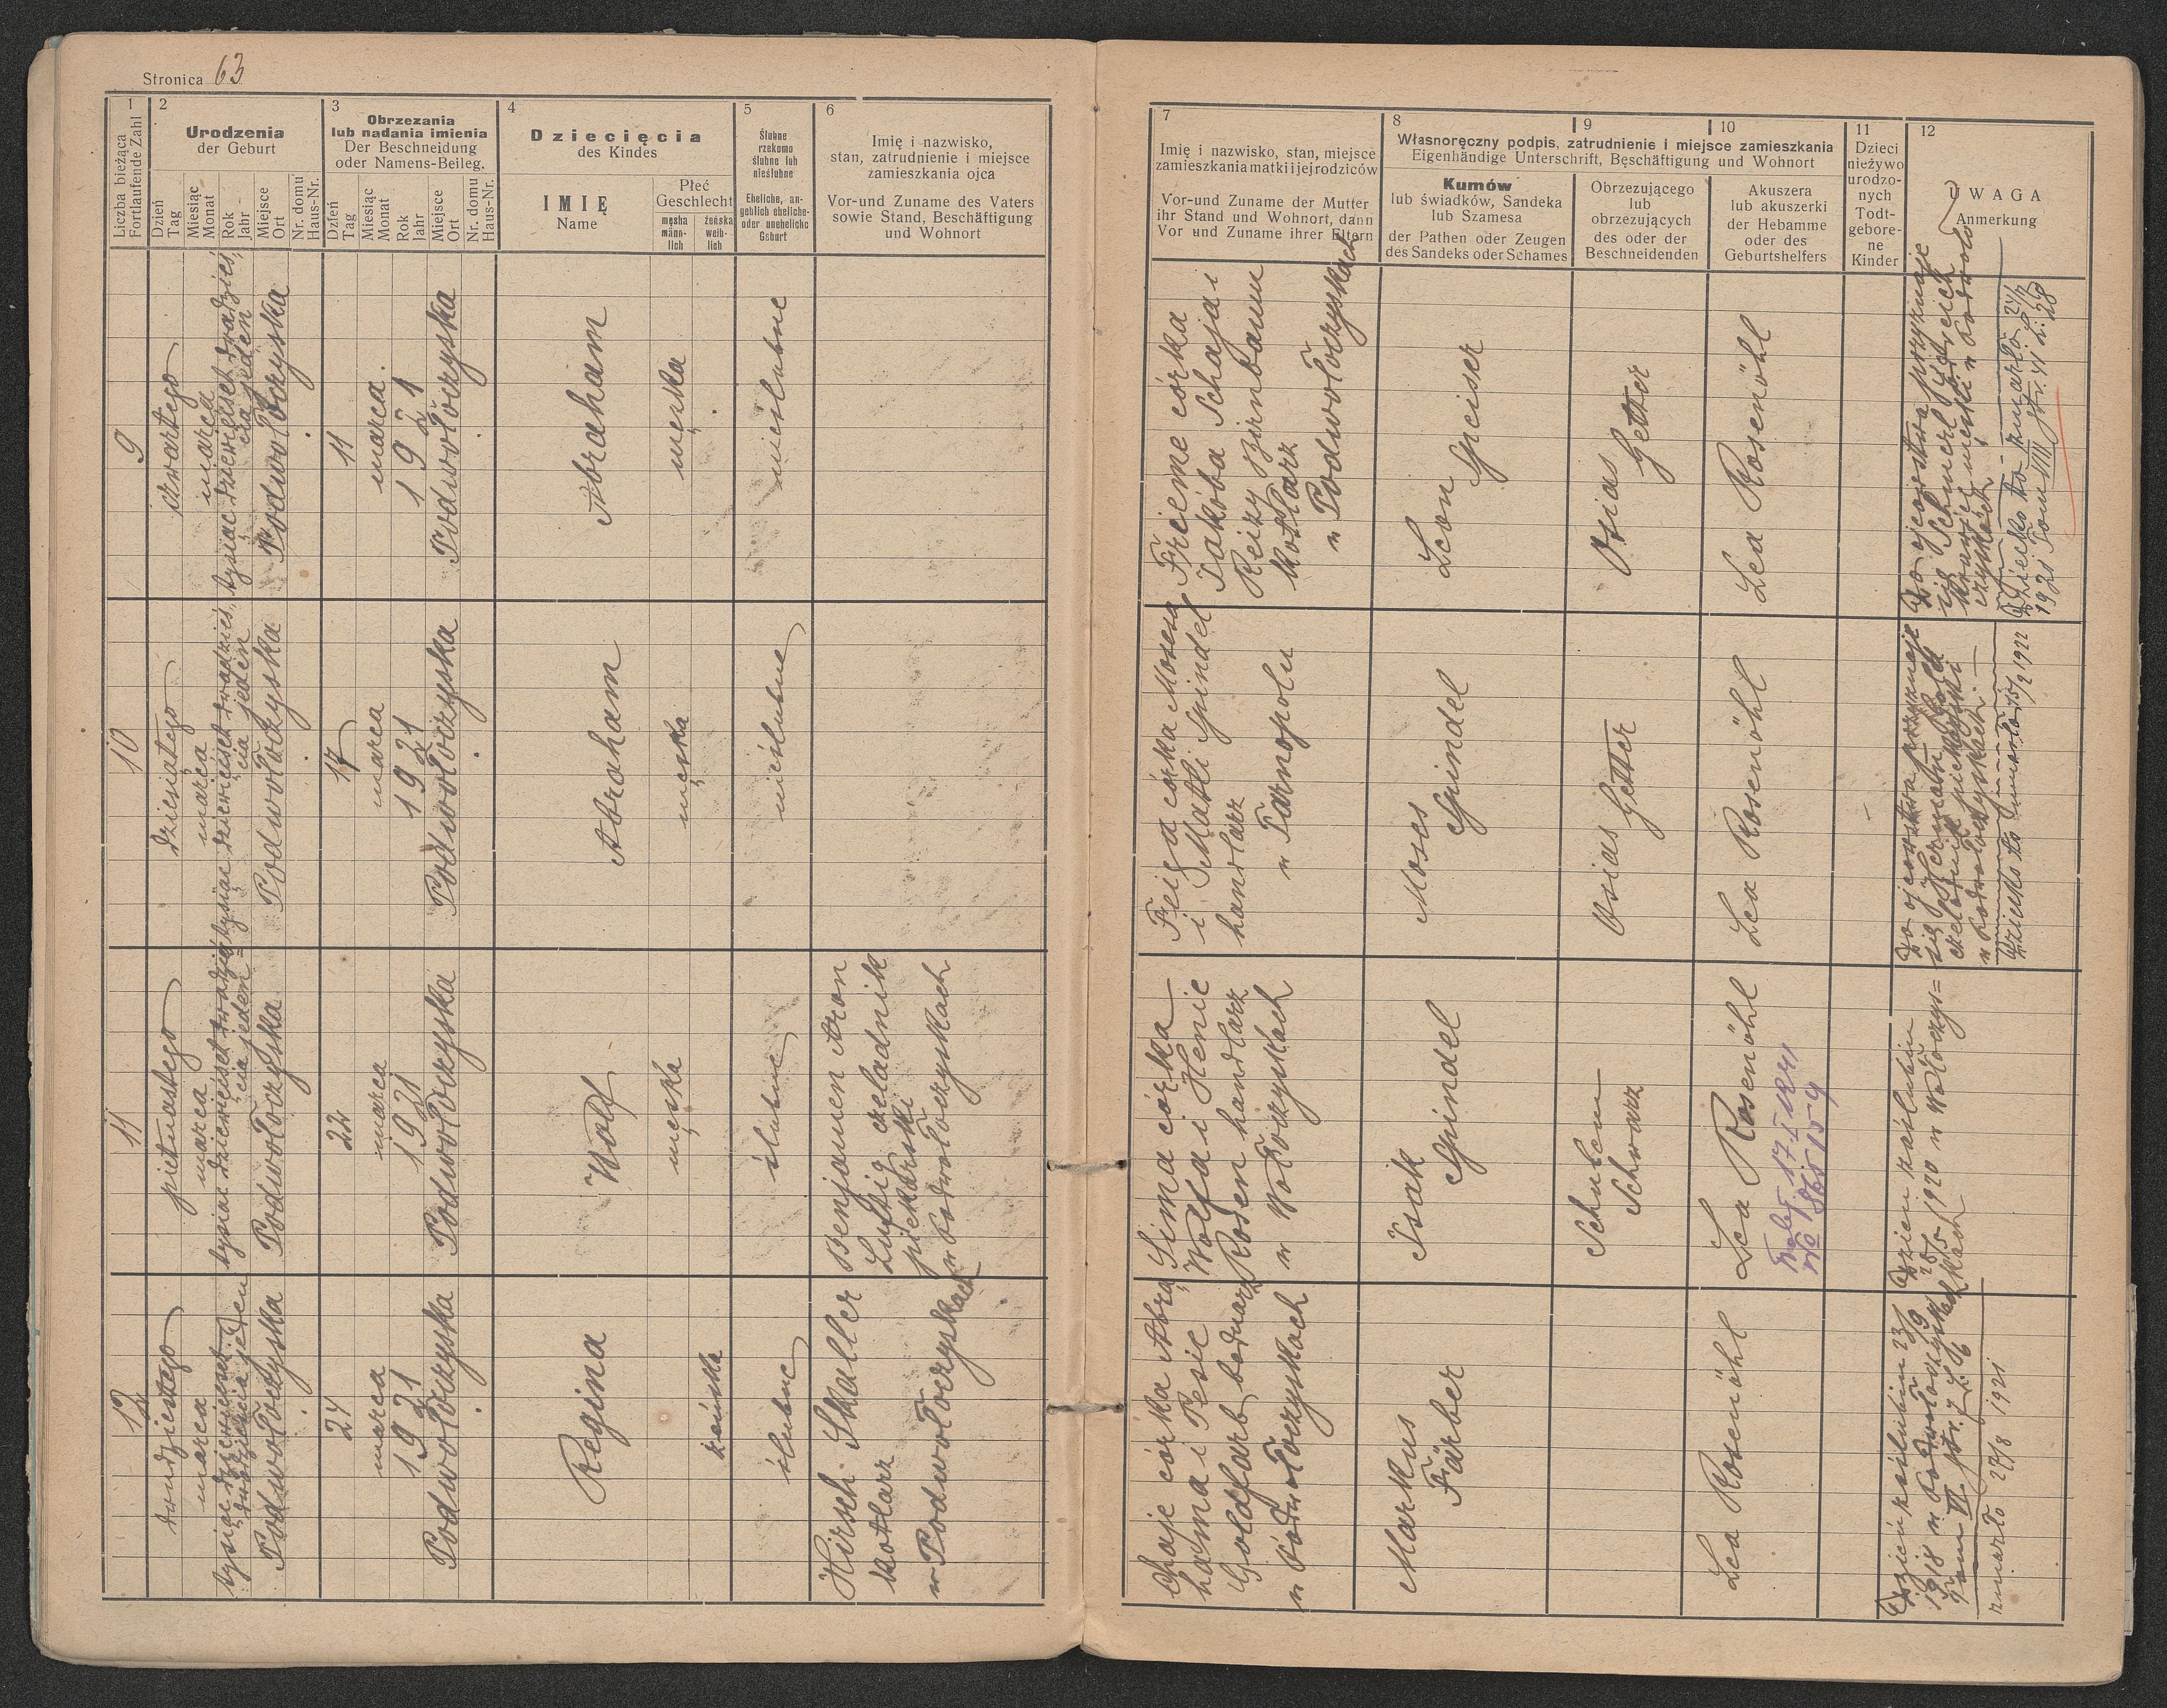 Stronica 63
1
Liczba bieżąca
Fortlaufende Zahl
2
Urodzenia
der Geburt
Dzień
Tag
Miesiąc
Monat
Rok
Jahr
Miejsce
Ort
Nr. domu
Haus-Nr.
3
Obrzezania
lub nadania imienia
Der Beschneidung
oder Namens-Beileg.
Dzień
Tag
Miesiąc
Monat
Rok
Jahr
Miejsce
Ort
Nr. domu
Haus-Nr.
4
Dziecięcia
des Kindes
IMIĘ
Name
Płeć
Geschlecht
męska
männ-
lich
żeńska
weib-
lich
5
Ślubne
rzekomo
ślubne lub
nieślubne
Eheliche, an-
geblich eheliche-
oder uneheliche
Geburt
6
Imię i nazwisko,
stan, zatrudnienie i miejsce
zamieszkania ojca
Vor-und Zuname des Vaters
sowie Stand, Beschäftigung
und Wohnort
7
Imię i nazwisko, stan, miejsce
zamieszkania matki i jej rodziców
Vor-und Zuname der Mutter
ihr Stand und Wohnort, dann
Vor und Zuname ihrer Eltern
8
9
10
Własnoręczny podpis, zatrudnienie i miejsce zamieszkania
Eigenhändige Unterschrift, Beschäftigung und Wohnort
Kumów
lub świadków, Sandeka
lub Szamesa
der Pathen oder Zeugen
des Sandeks oder Schames
Obrzezującego
lub
obrzezujących
des oder der
Beschneidenden
Akuszera
lub akuszerki
der Hebamme
oder des
Geburtshelfers
11
Dzieci
nieżywo
urodzo-
nych
Todt-
gebore-
ne
Kinder
12
UWAGA
Anmerkung
9
czwartego
marca
tysiąc dziewięćset dwadzieś,
cia jeden
Podwołoczyska
11
marca.
1921
Podwołoczyska
Abraham
męska
nieślubne
Frieme córka
Jakóba Schaja i
Reizy Birnbaum
kotlarz
w Podwołoczyskach
Leon
Speiser
Osias
Getter
Lea Rosenöhl
Do ojcostwa przyznaje
się Schmerl
krawiec męski w Podwoło
czyskach
Dziecko to zmarło
1921 Tom VIII str. VI L. 28
10
dziesiątego
marca
tysiąc dziewięćset dwadzieś,
cia jeden
Podwołoczyska
17
marca
1921
Podwołoczyska
Abraham
męska
nieślubne
Feiga córka Mosesa
i Matli Spindel
handlarz
w Tarnopolu
Moses
Spindel
Osias
Getter
Lea Rosenöhl
Do ojcostwa przyznaje
się Herman
czeladnik piekarski
w Podwołoczyskach
Dziecko to zmarło 15/2 1922
11
piętnastego
marca
tysiąc dziewięćset dwadzieś
cia jeden
Podwołoczyska
22
marca
1921
Podwołoczyska
Wolf
męska
ślubne
Benjamen Aron
Lufzig czeladnik
piekarski
w Podwołoczyskach
Sima córka
Wolfa i Henie
Rosen handlarz
w Wołoczyskach
Isak
Spindel
Schulem
Schwarz
Lea Rosenöhl
Dzien zaślubin
25/5 1920 w Wołoczys=
kach
12
dwudziestego
marca
tysiąc dziewięćset
dwadzieścia jeden
Podwołoczyska
24
marca
1921
Podwołoczyska
Regina
żeńska
ślubne
Hirsch Skaller
kotlarz
w Podwołoczyskach
Chaje córka Abra
hama i Pesie
Goldfarb bednarz
w Podwołoczyskach
Markus
Färber
Lea Rosenöhl
Dzień zaślubin 23/9
1918 w Podwołoczyskach
Tom VI str. 7 L. 6
zmarło 27/8 1921